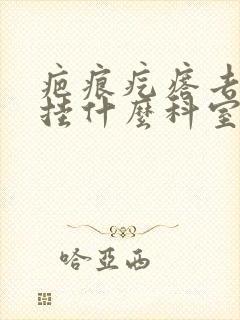 疤痕疙瘩去
挂什麼科室
哈亞西